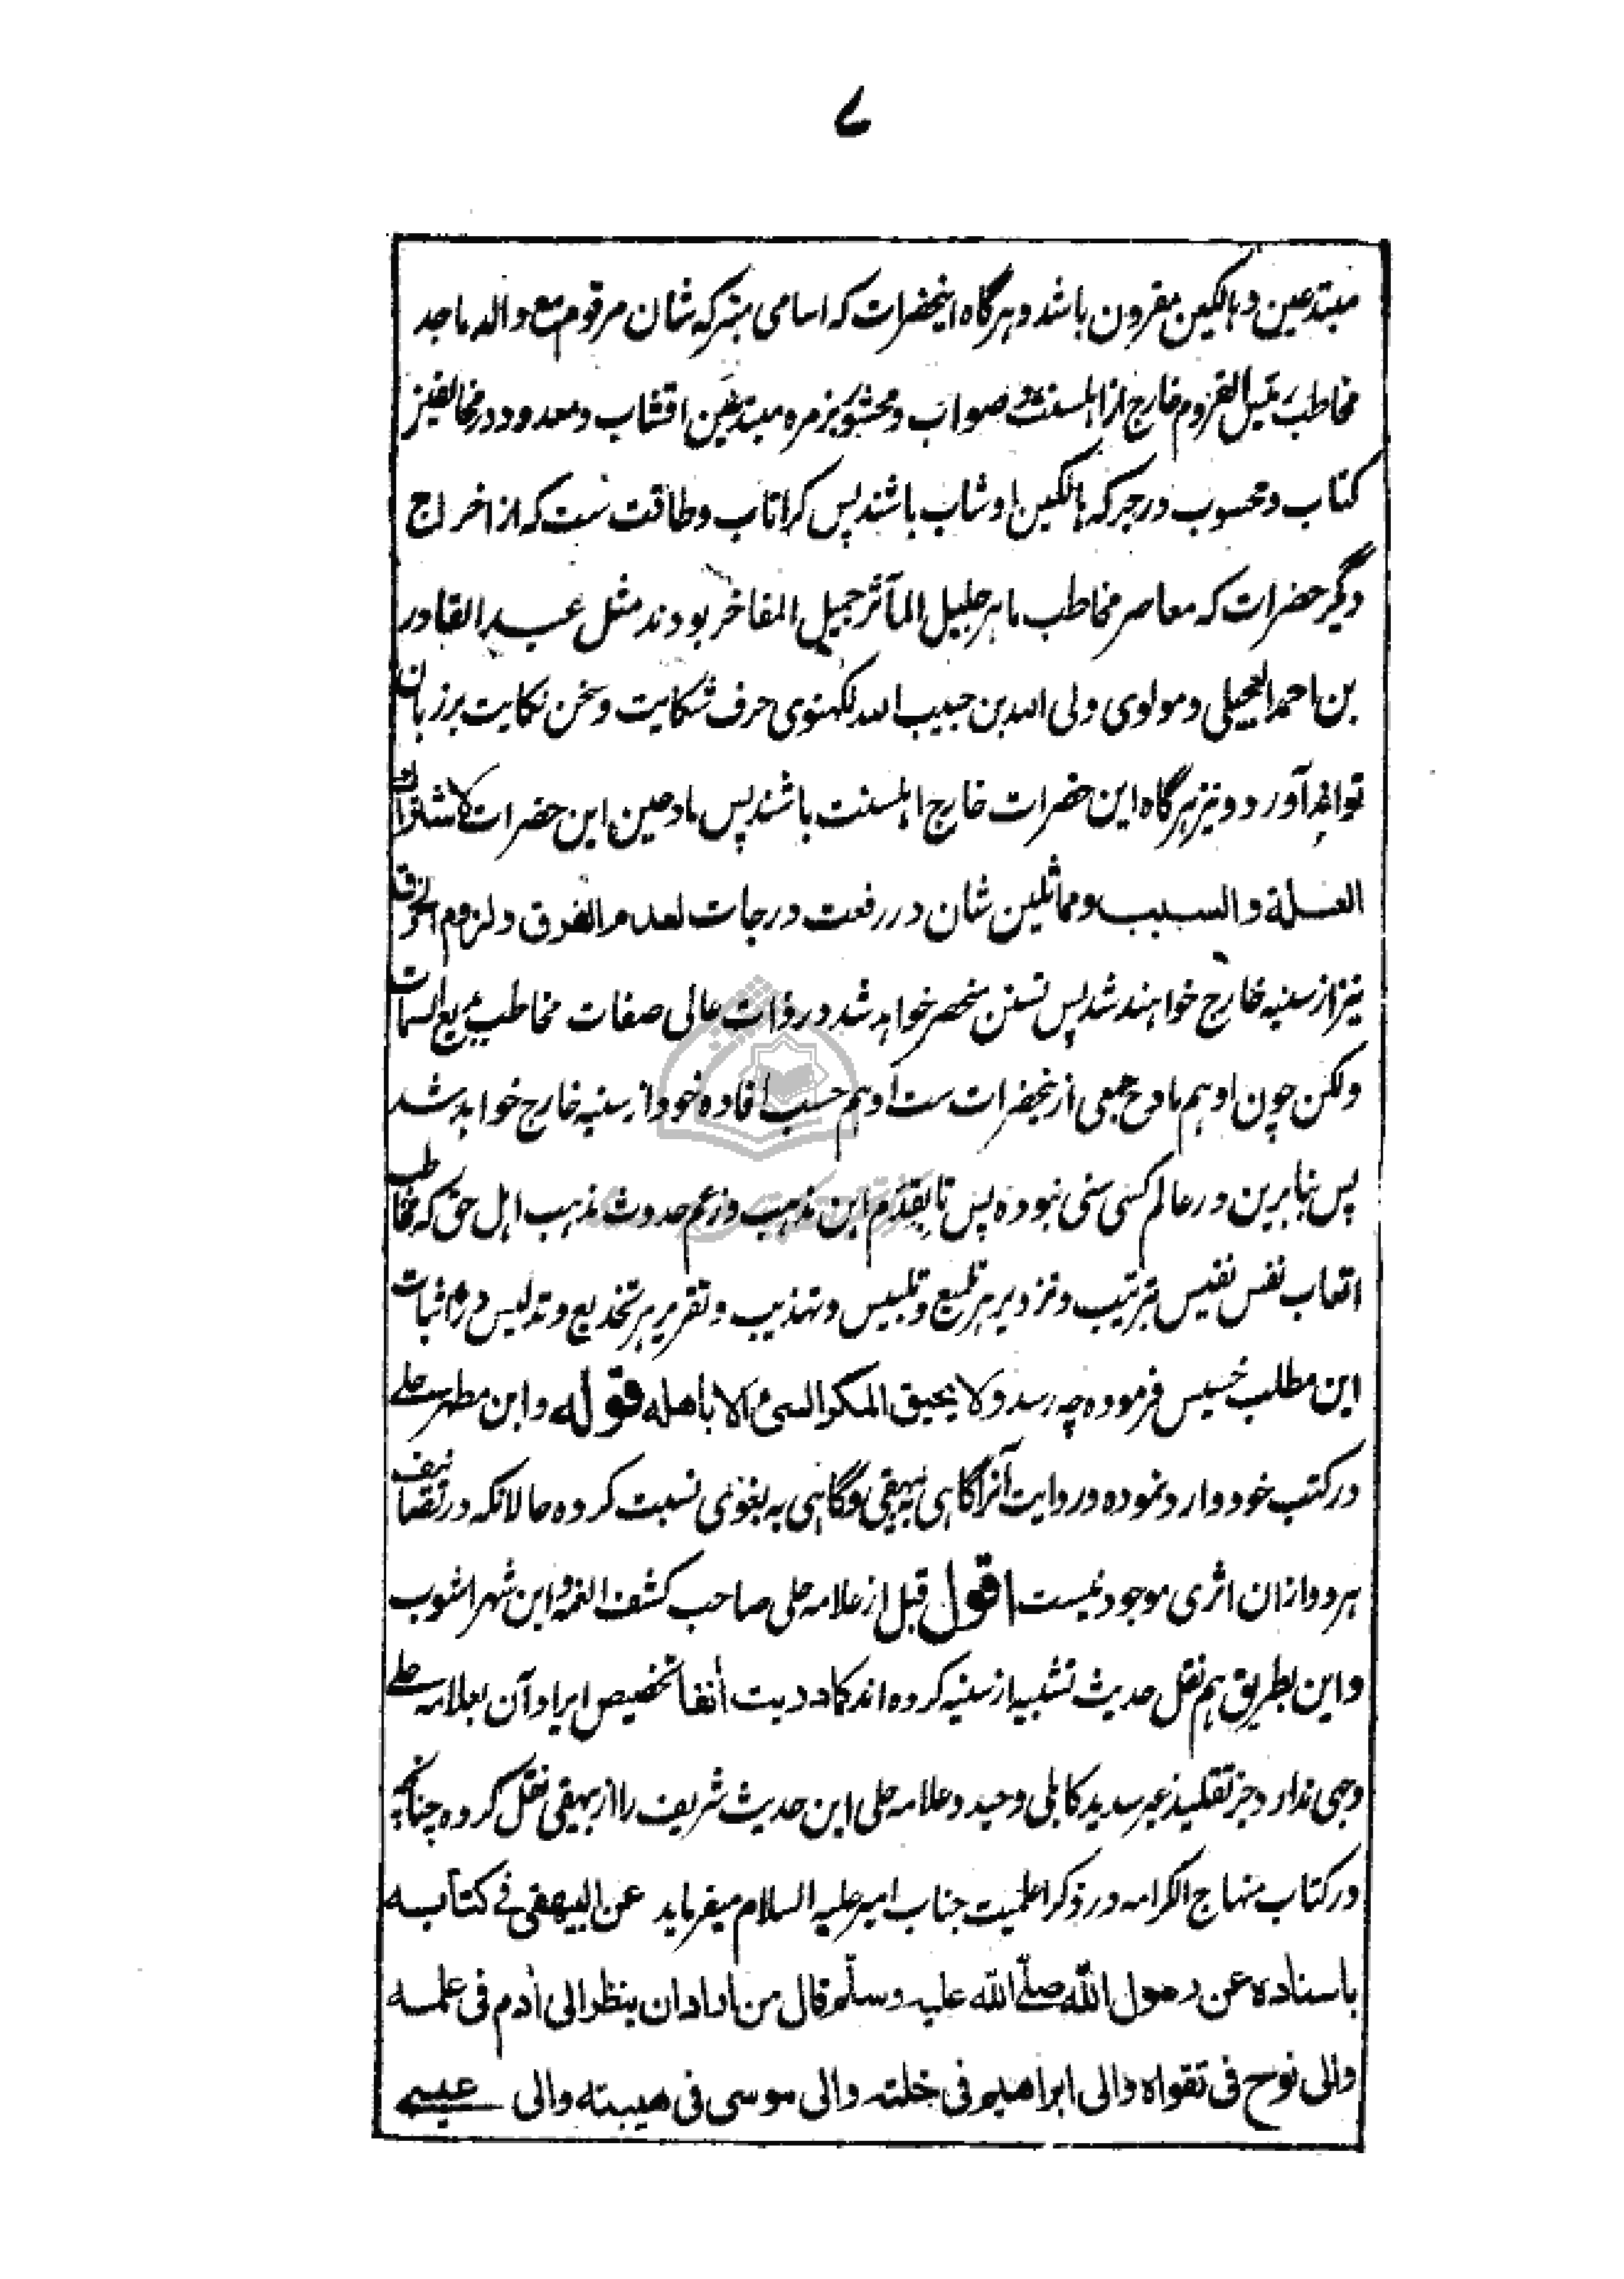 ۷
مبتدعین و هالکین مقرون باشد و هرگاه اینحضرات که اسامی متبرکه شان مرقوم مع والد ماجد
مخاطب نبیل القروم خارج از اهلسنت صواب و محشور بزمره مبتدعین اقشاب و معدود در مخالفین
کتاب و محسوب در جرگه هالکین اوشاب باشند پس کرا تاب و طاقت ست که از اخراج
دیگر حضرات که معاصر مخاطب ماهر جلیل المآثر جمیل المفاخر بودند مثل عبد القادر
بن احمد العجیلی و مولوی ولی الله بن حبیب الله لکهنوی حرف شکایت و سخن نکایت بر زبان
تواند آورد و نیز هرگاه این حضرات خارج اهلسنت باشند پس مادحین این حضرات لاشتراک
العلة والسبب و مماثلین شان در رفعت درجات لعدم الفرق ولزوم الخرق
نیز از سنیه خارج خواهند شد پس تسنن منحصر خواهد شد در ذات عالی صفات مخاطب بدیع السمات
ولکن چون او هم مادح جمعی ازینحضرات ست او هم حسب افاده خود از سنیه خارج خواهد شد
پس بنابرین در عالم کسی سنی نبوده پس تا بقدم این مذهب و زعم حدوث مذهب اهل حق که مخاطب
اتعاب نفس نفیس بترتیب و تزدیر هر تلمیع و تلبیس و تهذیب و تقریر هر تخدیع و تدلیس در اثبات
این مطلب خسیس فرموده چه رسد ولا یحیق المکر السیئ الا باهله قوله و ابن مطهر حلی
در کتب خود وارد نموده و روایت آنرا گاهی به بیهقی و گاهی به بغوی نسبت کرده حالانکه در تصانیف
هر دو ازان اثری موجود نیست اقول قبل از علامه حلی صاحب کشف الغمه و ابن شهر اشوب
و ابن بطریق هم نقل حدیث تشبیه از سنیه کرده اند کما دریت انفا تخصیص ایراد آن بعلامه حلی
وجهی ندارد جز تقلید غیر سدید کابلی وحید و علامه حلی این حدیث شریف را از بیهقی نقل کرده چنانچه
در کتاب منهاج الکرامه در ذکر اعلمیت جناب امیر علیه السلام میفرماید عن البیهقی فی کتابه
باسناده عن رسول الله صلی الله علیه وسلم قال من اراد ان ینظر الی ادم فی علمه
والی نوح فی تقواه والی ابراهیم فی خلته والی موسی فی هیبته والی عیسی